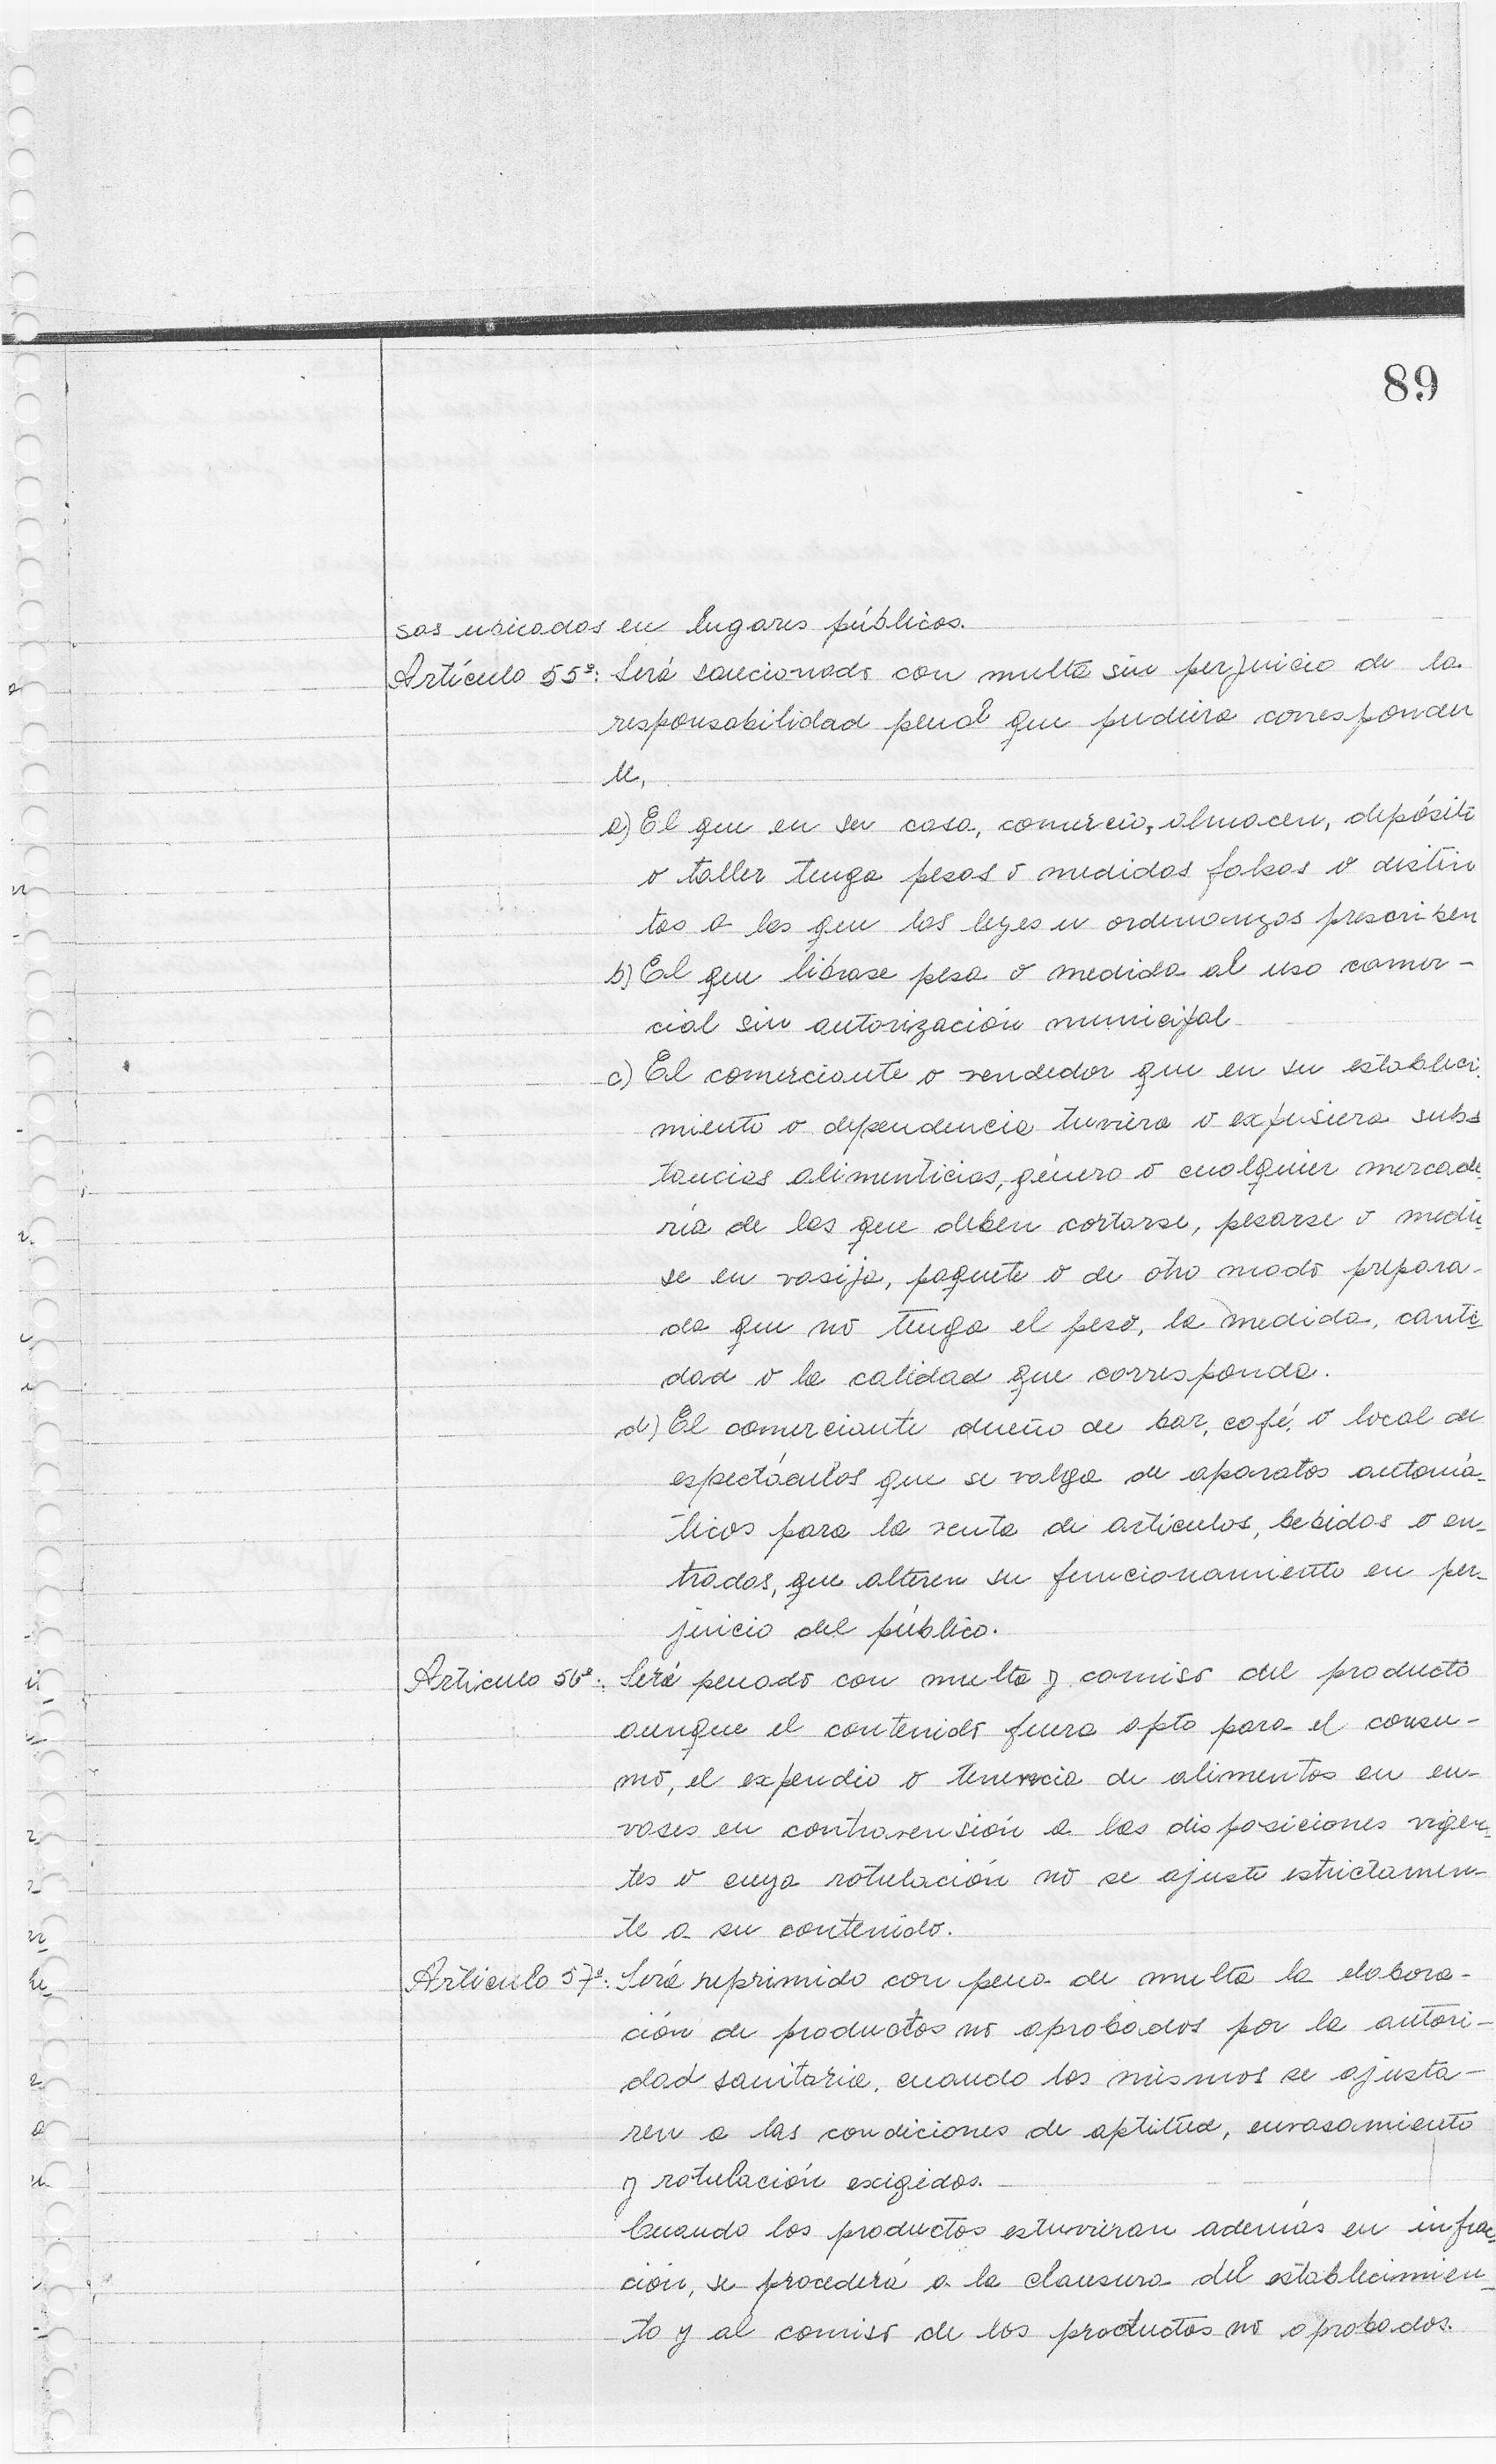 89
sas usicados en lugares públicos.
Artículo 55º: Será sancionado con multa sin perjuicio de la
responsabilidad penal que pudiera corresponder
le,
a) El que en su casa, comercio, almacen, depósito
o taller tenga pesas o medidas falsas o distin
tas a las que las leyes u ordenanzas prescriben
b) El que librase pesa o medida al uso comer-
cial sin autorización municipal
c) El comerciante o vendedor que en su estableci
miento o dependencia tuviera o expusiera subs
tancias alimenticias, género o cualquier mercade
ría de las que deben cortarse, pesarse o medir
se en vasija, paquete o de otro modo prepara-
da que no tenga el peso, la medida, canti
dad o la calidad que corresponda.
d) El comerciante dueño de bar, café, o local de
espectáculos que se valga de aparatos automá-
ticos para la venta de artículos, bebidas o en-
tradas, que alteren su funcionamiento en per-
juicio del público.
Artículo 56º: Será penado con multa y comiso del producto
aunque el contenido fuera apto para el consu-
mo, el expendio o tenencia de alimentos en en-
vases en contravensión a las disposiciones vigen-
tes o cuya rotulación no se ajuste estrictamen-
te a su contenido.
Artículo 57º: Será reprimido con pena de multa la elabora-
ción de productos no aprobados por la autori-
dad sanitaria, cuando los mismos se ajusta-
ren a las condiciones de aptitud, envasamiento
y rotulación exigidos.
Cuando los productos estuvieran además en infrac-
ción, se procederá a la clausura del establecimien-
to y al comiso de los productos no aprobados.